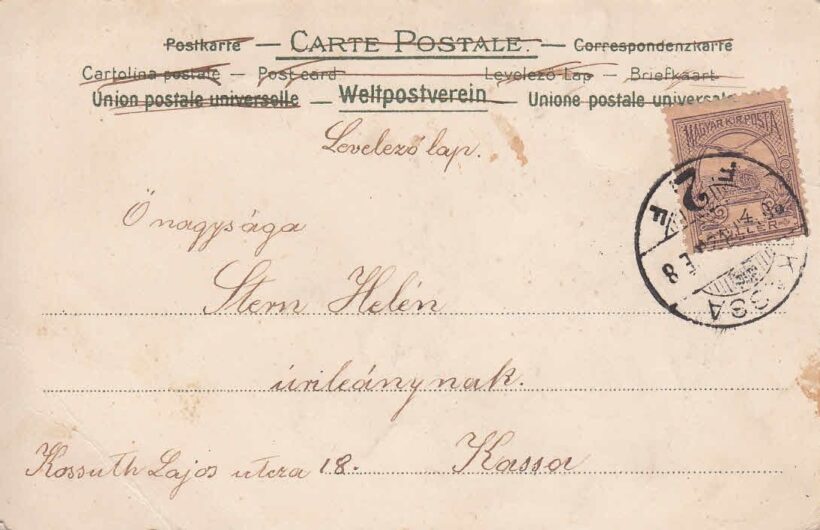 Postkarte — CARTE POSTALE. — Correspondenzkarte
Cartolina postale — Post card — Levelező Lap — Briefkaart
Union postale universelle — Weltpostverein — Unione postale universale
Levelező lap.
MAGYAR KIR. POSTA
2 F
FILLER
KASSA
Önagysága
Stern Helén
úrileánynak.
Kossuth Lajos utcza 18. Kassa